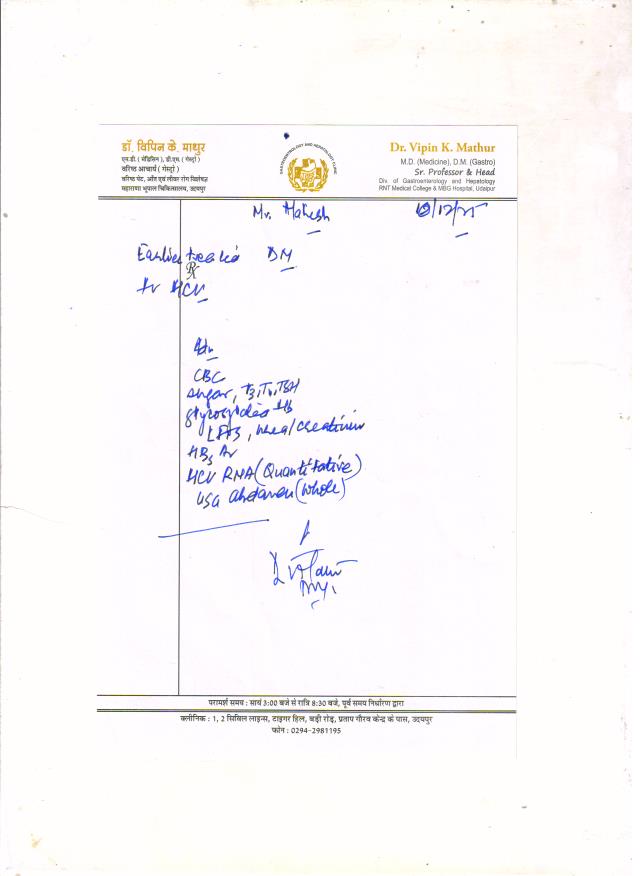 डॉ. विपिन के. माथुर
एम.डी. ( मेडिसिन ), डी.एम. ( गेस्ट्रो )
वरिष्ठ आचार्य ( गेस्ट्रो )
वरिष्ठ पेट, आँत एवं लीवर रोग विशेषज्ञ
महाराणा भूपाल चिकित्सालय, उदयपुर
GASTROENTEROLOGY AND HEPATOLOGY CLINIC
Dr. Vipin K. Mathur
M.D. (Medicine), D.M. (Gastro)
Sr. Professor & Head
Div. of Gastroenterology and Hepatology
RNT Medical College & MBG Hospital, Udaipur
Mr. Mahesh
Earlier treated DM
℞
for HCV
Adv
CBC
Sugar, T3, T4, TSH
glycosylated Hb
LFTs, urea/creatinin
HBs
HCV RNA (Quantitative)
USG abdomen (whole)
परामर्श समय : सायं 3:00 बजे से रात्रि 8:30 बजे, पूर्व समय निर्धारण द्वारा
क्लीनिक : 1, 2 सिविल लाइन्स, टाइगर हिल, बड़ी रोड़, प्रताप गौरव केन्द्र के पास, उदयपुर
फोन : 0294-2981195